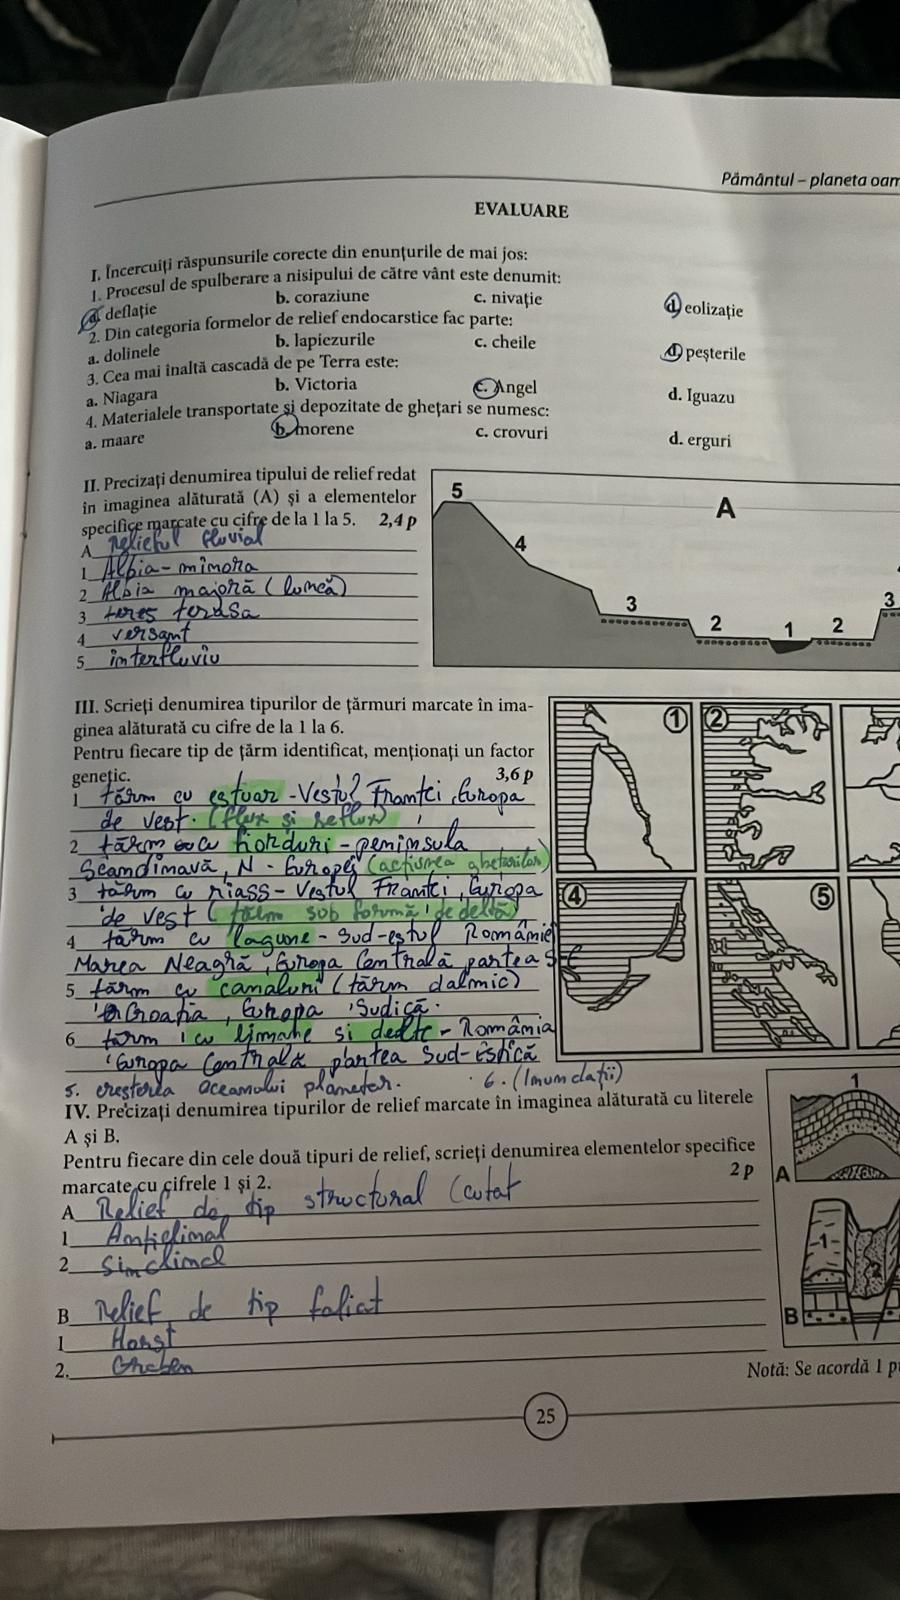 Pământul – planeta oam
EVALUARE
I. Încercuiți răspunsurile corecte din enunțurile de mai jos:
1. Procesul de spulberare a nisipului de către vânt este denumit:
a. deflație b. coraziune c. nivație d. eolizație
2. Din categoria formelor de relief endocarstice fac parte:
a. dolinele b. lapiezurile c. cheile d. peșterile
3. Cea mai înaltă cascadă de pe Terra este:
a. Niagara b. Victoria c. Angel d. Iguazu
4. Materialele transportate și depozitate de ghețari se numesc:
a. maare b. morene c. crovuri d. erguri
II. Precizați denumirea tipului de relief redat
în imaginea alăturată (A) și a elementelor
specifice marcate cu cifre de la 1 la 5. 2,4 p
A relieful fluvial
1 Albia-minora
2 Albia majoră (luncă)
3 terasa
4 versant
5 interfluviu
5
A
4
3
2
1
2
3
III. Scrieți denumirea tipurilor de țărmuri marcate în ima-
ginea alăturată cu cifre de la 1 la 6.
Pentru fiecare tip de țărm identificat, menționați un factor
genetic. 3,6 p
1 tărm cu estuar - Vestul Frantei, Europa
de vest. (flux si reflux)
2 tărm cu fiorduri - peninsula
Scandinavă, N - Europei (actiunea ghetarilor)
3 tărm cu riass - Vestul Frantei, Europa
de vest (tărm sub formă de deltă)
4 tărm cu lagune - Sud-estul României
Marea Neagră, Europa Centrală partea S-E
5 tărm cu canaluri (tărm dalmic)
Croatia, Europa Sudică.
6 tărm cu limane si delte - România
Europa Centrală partea Sud-estică
5. cresterea oceamului planetar. 6. (Inundatii)
1
2
4
5
IV. Precizați denumirea tipurilor de relief marcate în imaginea alăturată cu literele
A și B.
Pentru fiecare din cele două tipuri de relief, scrieți denumirea elementelor specifice
marcate cu cifrele 1 și 2. 2 p
A Relief de tip structural (cutat
1 Anticlinal
2 Sinclinal
B Relief de tip faliat
1 Horst
2. Graben
1
A
1
2
B
Notă: Se acordă 1 p
25